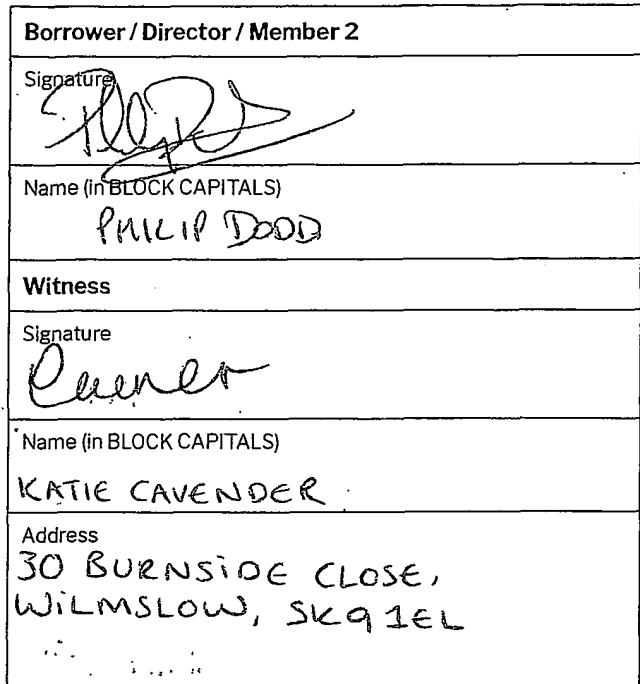 Borrower / Director / Member 2
Signature
Name (in BLOCK CAPITALS)
PHILIP DODD
Witness
Signature
Name (in BLOCK CAPITALS)
KATIE CAVENDER
Address
30 BURNSIDE CLOSE,
WILMSLOW, SK9 1EL